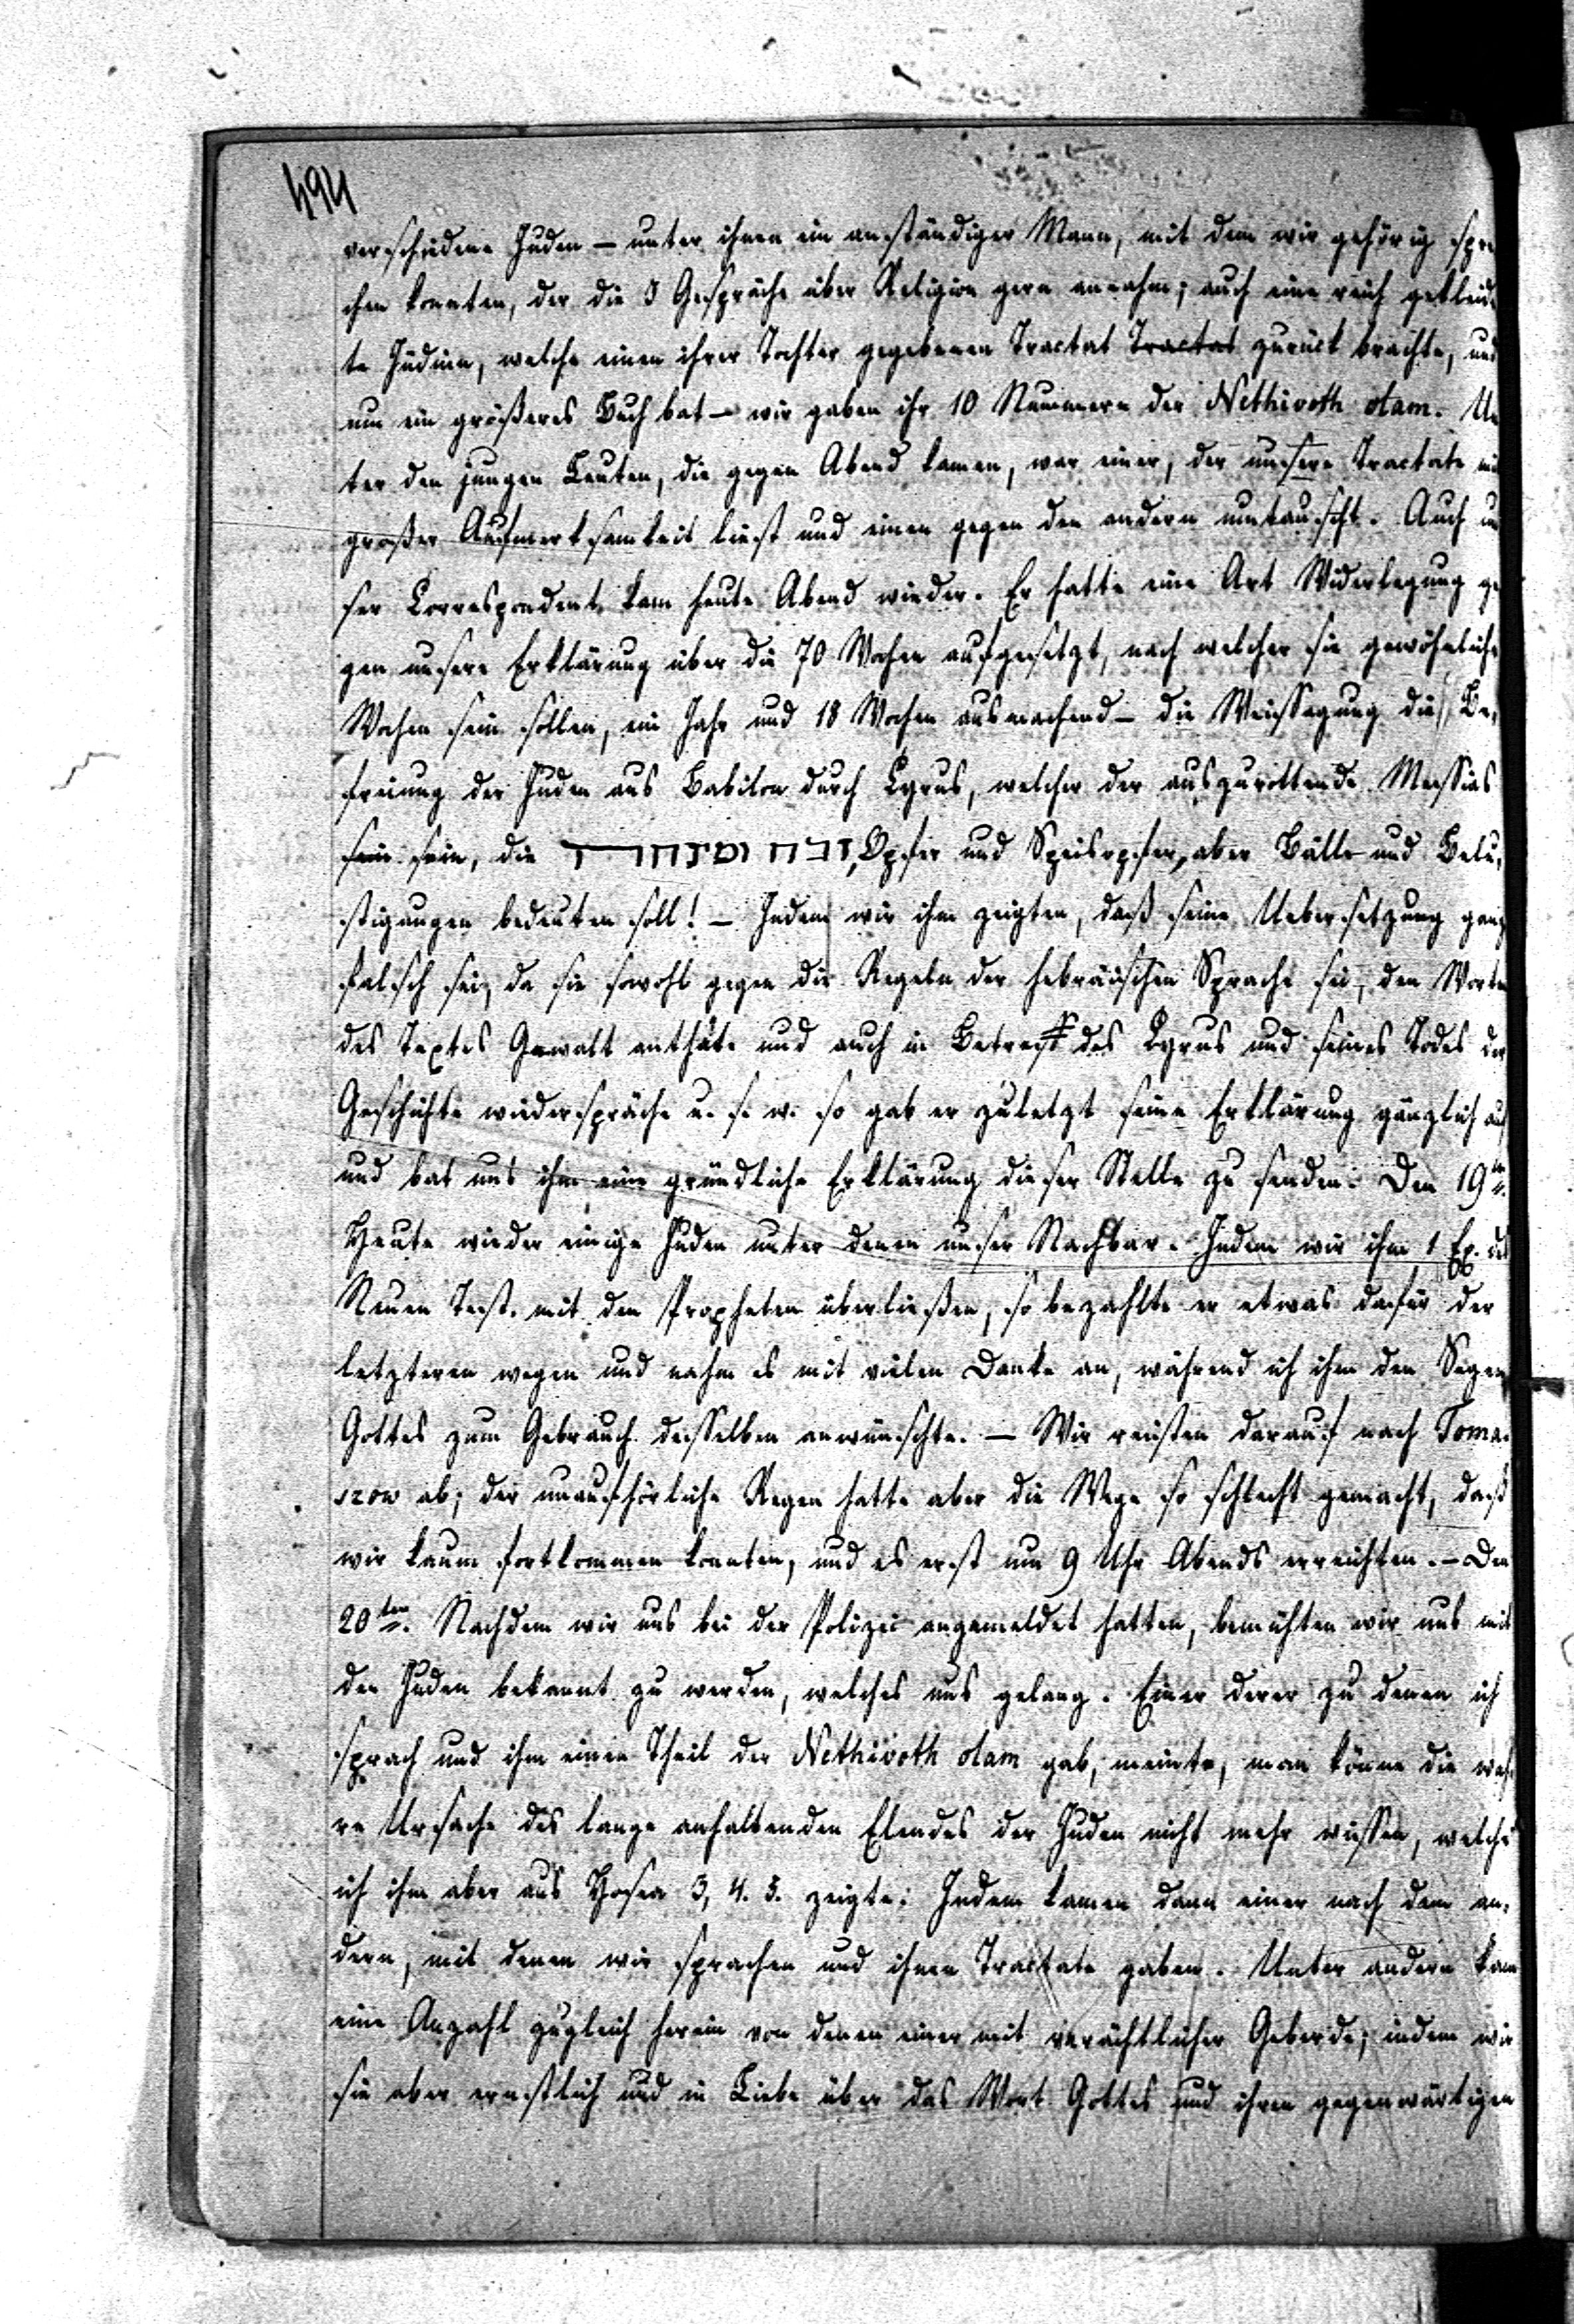 494
verschiedene Juden – unter ihnen ein anständiger Mann, mit dem wir gehörig spre
chen konnten, der die Gespräche über Religion gern annahm; auch eine reich gekleide
te Jüdinn, welche einen ihrer Tochter gegebenen Tractat Tractat zurück brachte, und
um ein größeres Buch bat – wir gaben ihr 10 Nummern der Nethivoth olam. Un
ter den jungen Leuten, die gegen Abend kamen, war einer, der unsere Tractate mit
großer Aufmerksamkeit liest und einen gegen den andern umtauscht. Auch un
ser Correspondent kam heute Abend wieder. Er hatte eine Art Widerlegung ge
gen unsere Erklärung über die 70 Wochen aufgesetzt, nach welcher sie gewöhnliche
Wochen sein sollen, ein Jahr und 18 Wochen ausmachend – die Weissagung die Be,
freiung der Juden aus Babilon durch Cyrus, welcher der auszurottende Messias
sein, die זבח ומנחה, Opfer und Speisopfer, aber Bälle und Belu,
stigungen bedeuten soll! – Indem wir ihm zeigten, daß seine Uebersetzung ganz
falsch sei, da sie sowohl gegen die Regeln der hebräischen Sprache sei, den Worten
des Textes Gewalt anthäte und auch in Betreff des Cyrus und seines Todes der
Geschichte wiederspräche u. s. w. so gab er zuletzt seine Erklärung gänzlich auf
und bat uns ihm eine gründliche Erklärung dieser Stelle zu senden. Den 19ten.
Heute wieder einige Juden unter denen unser Nachbar. Indem wir ihm 1 Ex. des
Neuen Test. mit den Propheten überließen, so bezahlte er etwas dafür der
letzteren wegen und nahm es mit vielen Danke an, während ich ihm den Segen
Gottes zum Gebrauch desselben anwünschte. – Wir reisten darauf nach Toma.
szow ab; der unaufhörliche Regen hatte aber die Wege so schlecht gemacht, daß
wir kaum fortkommen konnten, und es erst um 9 Uhr Abends erreichten. – Den
20ten. Nachdem wir uns bei der Polizei angemeldet hatten, bemühten wir uns mit
den Juden bekannt zu werden, welches uns gelang. Einer derer zu denen ich
sprach und ihm einen Theil der Nethivoth olam gab, meinte, man könne die wah
re Ursache des lange anhaltenden Elendes der Juden nicht mehr wissen, welche
ich ihm aber aus Hosea 3, 4. 5. zeigte. Indem kamen dann einer nach dem an,
dern, mit denen wir sprachen und ihnen Tractate gaben. Unter andern kam
eine Anzahl zugleich herein von denen einer mit verächtlicher Geberde; indem wir
sie aber ernstlich und in Liebe über das Wort Gottes und ihren gegenwärtigen